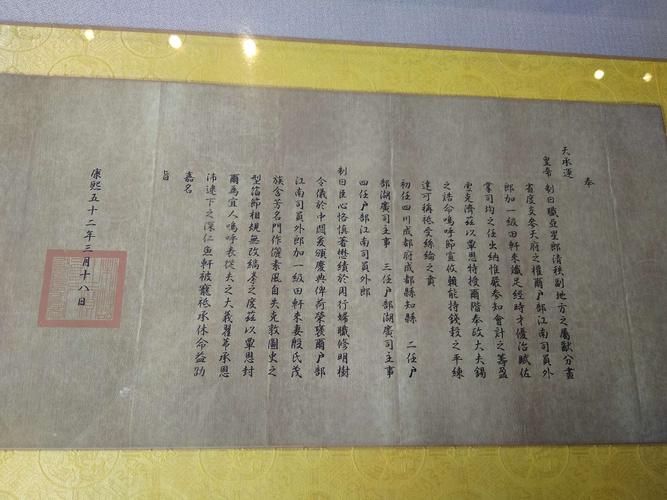 奉
天承運
皇帝制曰職亞星郎清秩副地方之屬猷分畫
省度支參天府之權爾戶部江南司員外
郎加一級田軒來識足經時才優治賦佐
掌司均之任出納惟嚴參知會計之籌盈
虛克濟茲以覃恩特授爾階奉政大夫錫
之誥命嗚呼節宣攸賴能持錢穀之平練
達可稱祗受絲綸之賁
初任四川成都府成都縣知縣 二任戶
部湖廣司主事 三任戶部湖廣司主事
四任戶部江南司員外郎
制曰臣心恪慎著懋績於周行婦職修明樹
令儀於中閫爰頒慶典俾荷榮褒爾戶部
江南司員外郎加一級田軒來妻殷氏茂
族含芳名門作儷素風自失克敦圖史之
型箴節相規無改縞綦之度茲以覃恩封
爾為宜人嗚呼表從夫之大義翟茀承恩
沛逮下之深仁魚軒被寵祗承休命益劭
嘉名
旨
康熙五十二年三月十八日